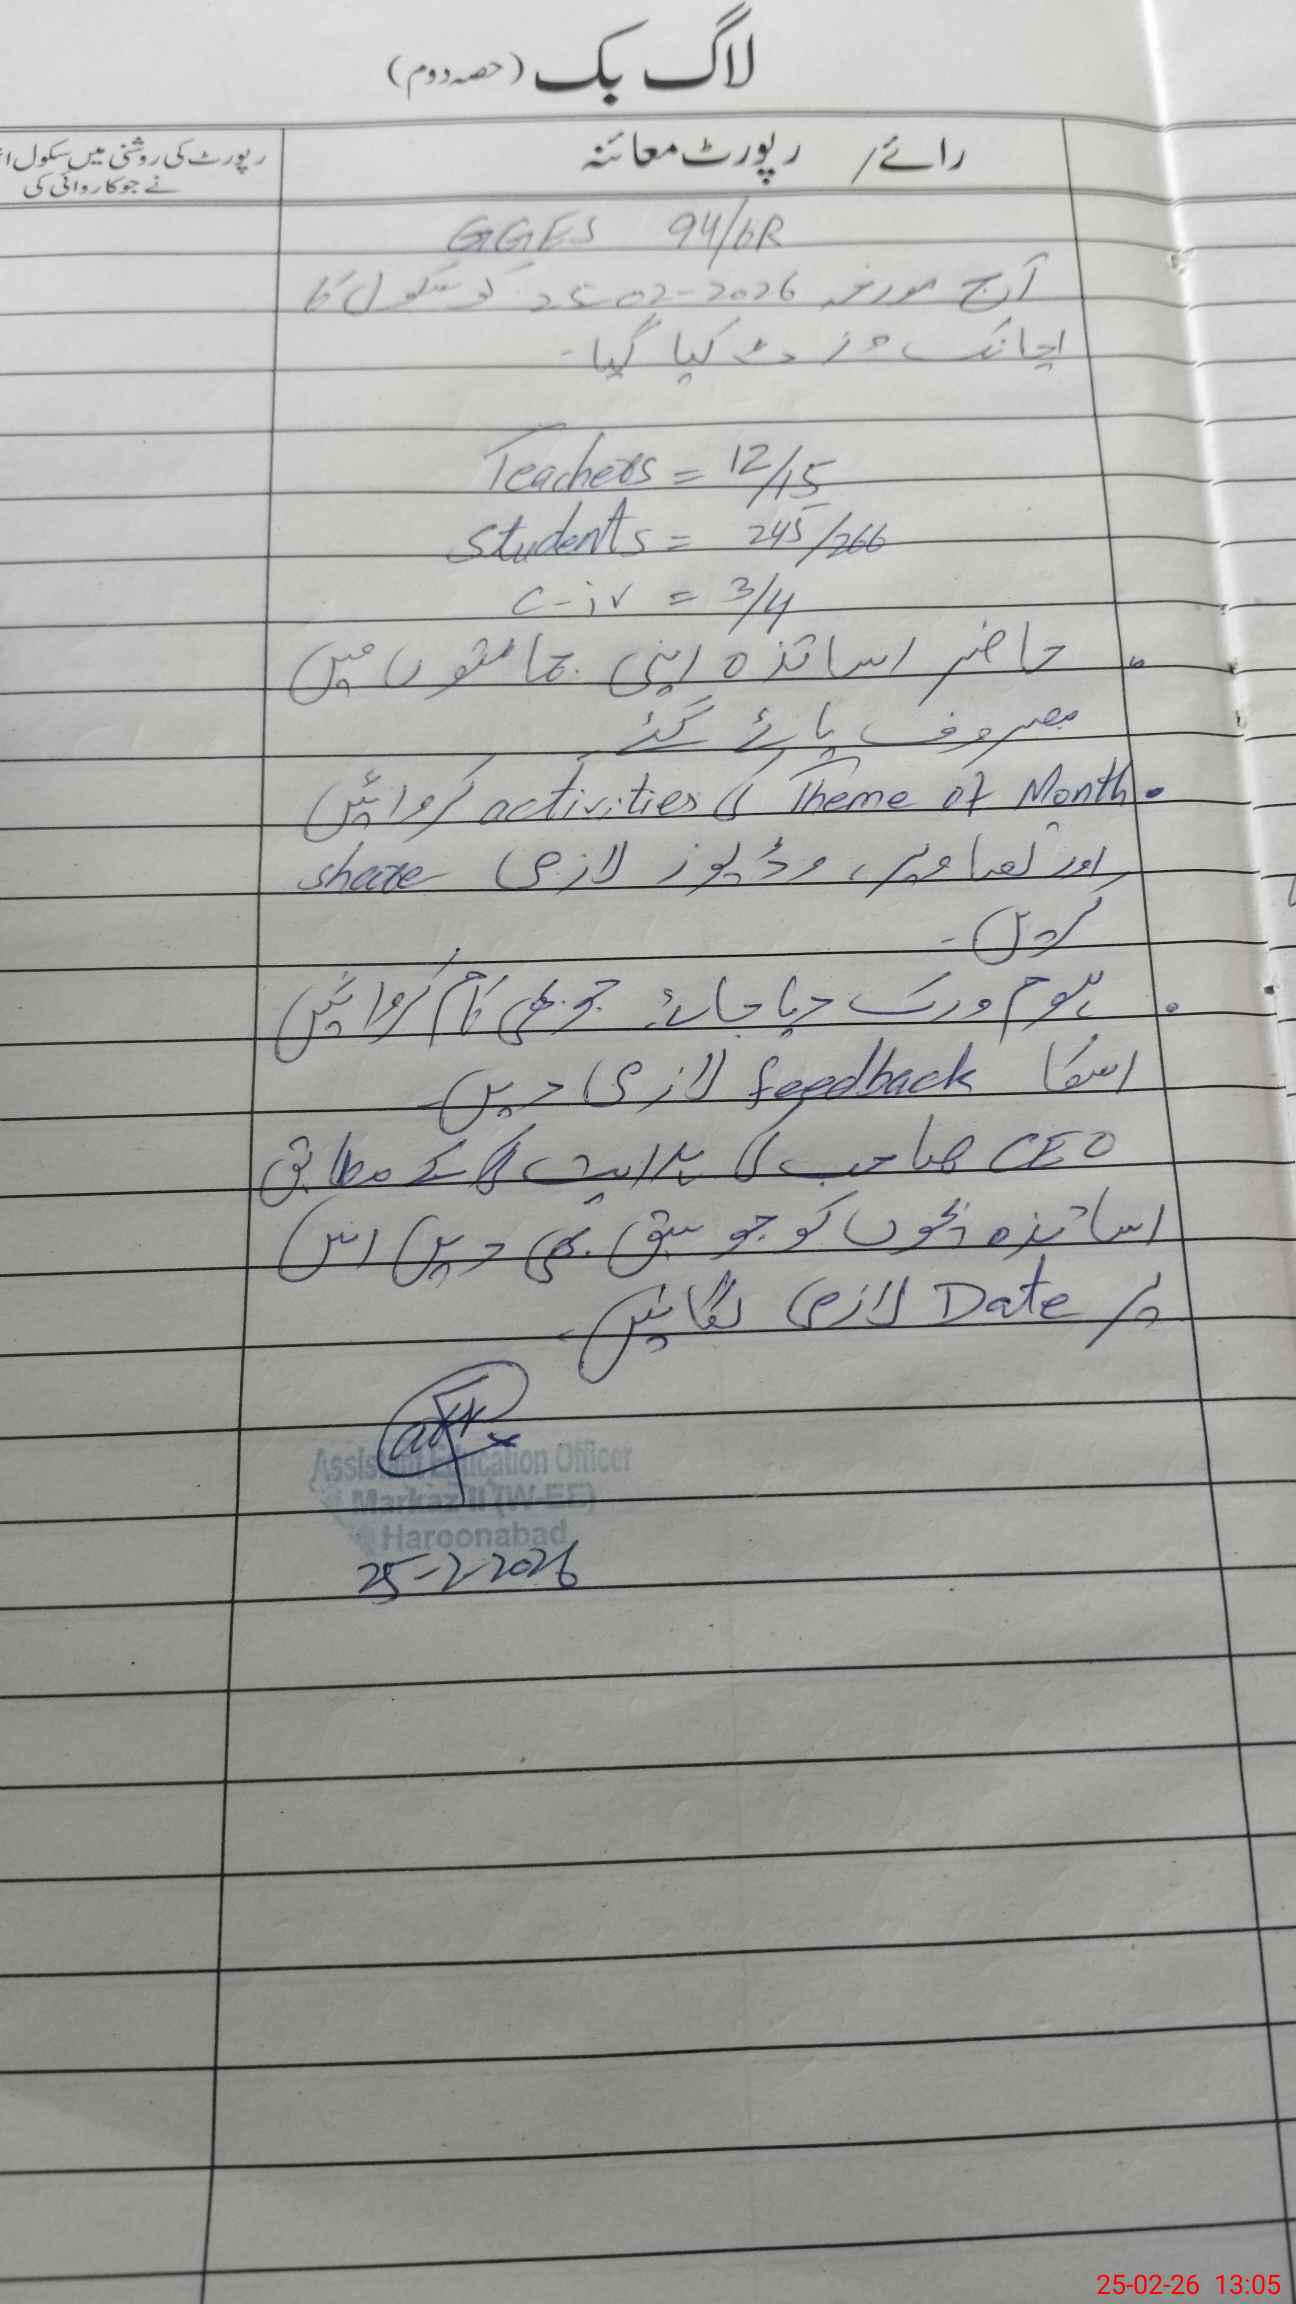 لاگ بک (حصہ دوم)
رائے/ رپورٹ معائنہ
رپورٹ کی روشنی میں سکول
نے جو کاروائی کی
GGES 94/6R
آج مورخہ 25-02-2026 کو سکول کا
اچانک وزٹ کیا گیا۔
Teachers = 12/15
Students = 245/266
C-iv = 3/4
حاضر اساتذہ اپنی جماعتوں میں
مصروف پائے گئے
Theme of Month کی activities کروائیں
اور تصاویر، وڈیوز لازمی share
کریں۔
ہوم ورک دیا جائے۔ جو بھی کام کروائیں
اسکا feedback لازمی دیں۔
CEO صاحب کی ہدایت کے مطابق
اساتذہ بچوں کو جو سبق بھی دیں اس
پر Date لازمی لگائیں۔
Assistant Education Officer
Markaz II (W-EE)
Haroonabad
25-2-2026
25-02-26 13:05